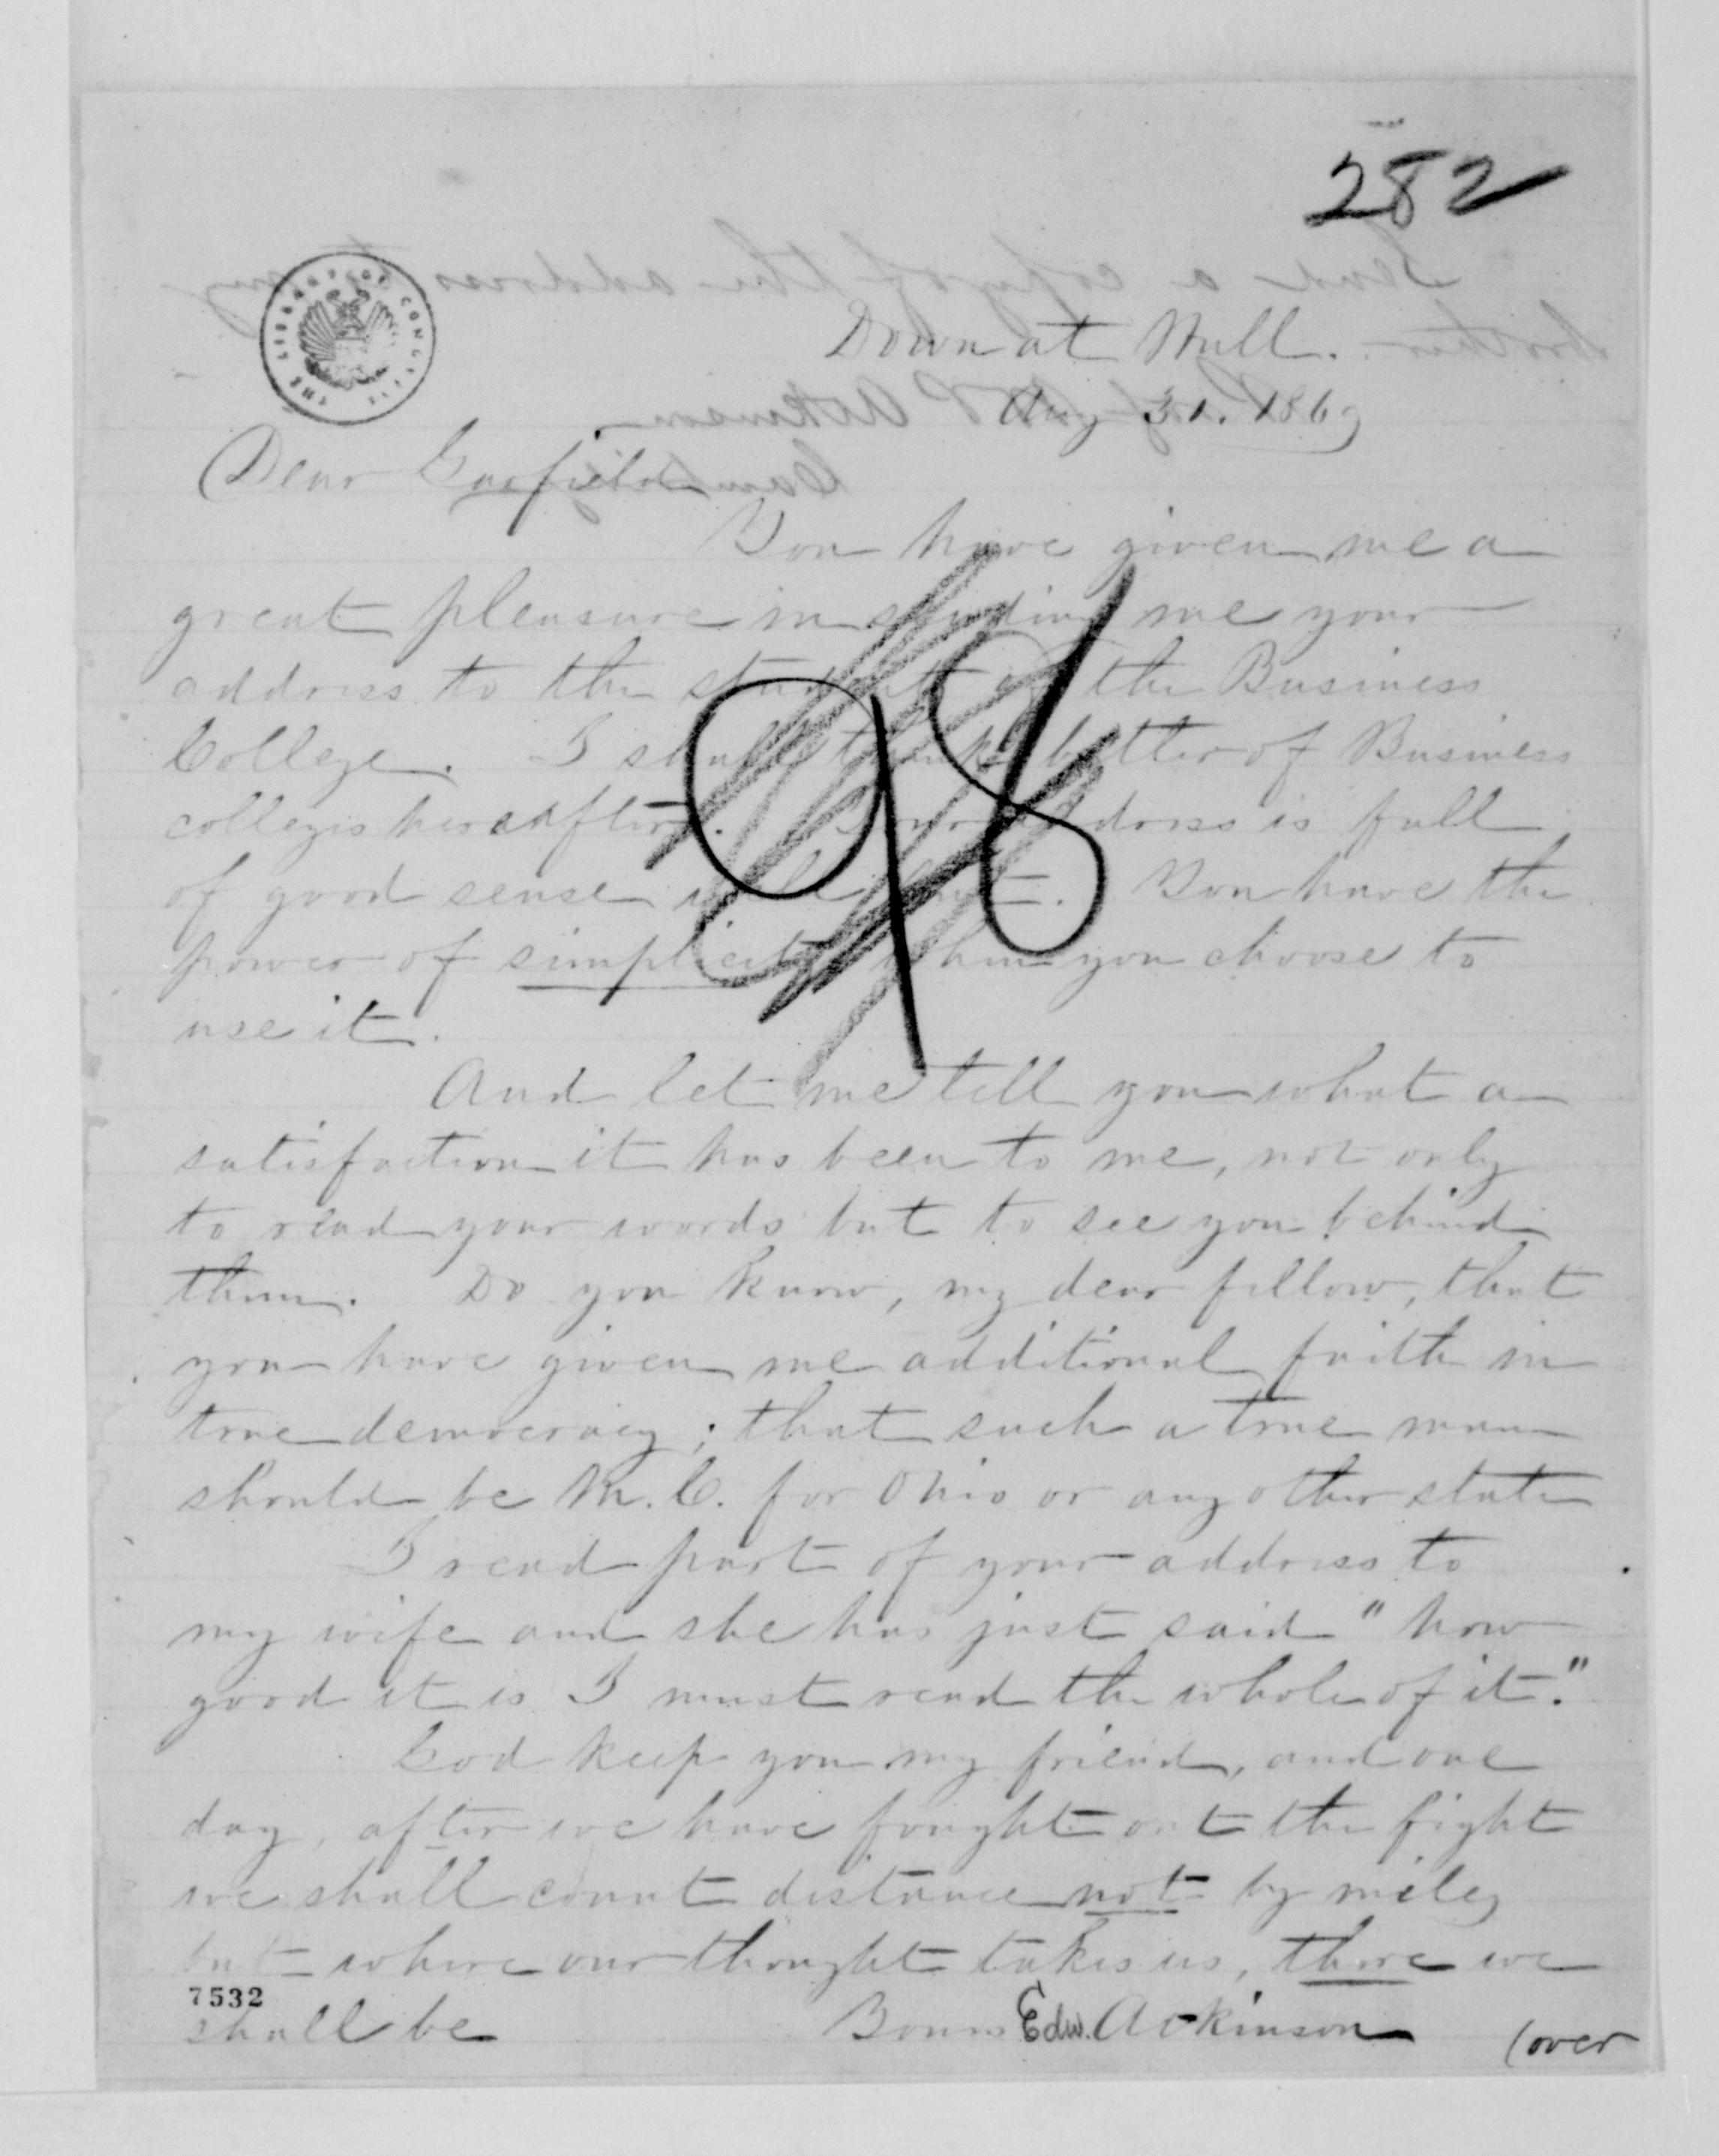 282
THE LIBRARY OF CONGRESS
Down at Mill.
Aug 31. 1869
Dear Garfield
You have given me a
great pleasure in sending me your
address to the students of the Business
College. I shall think better of Business
colleges hereafter. Your address is full
of good sense. You have the
power of simplicity when you choose to
use it.
98
And let me tell you what a
satisfaction it has been to me, not only
to read your words but to see you behind
them. Do you know, my dear fellow, that
you have given me additional faith in
true democracy; that such a true man
should be M.C. for Ohio or any other state
I read part of your address to
my wife and she has just said "how
good it is I must read the whole of it."
God keep you my friend, and one
day, after we have fought out the fight
we shall count distance not by miles
but where our thought takes us, there we
7532
shall be
Yours Edw. Atkinson
(over